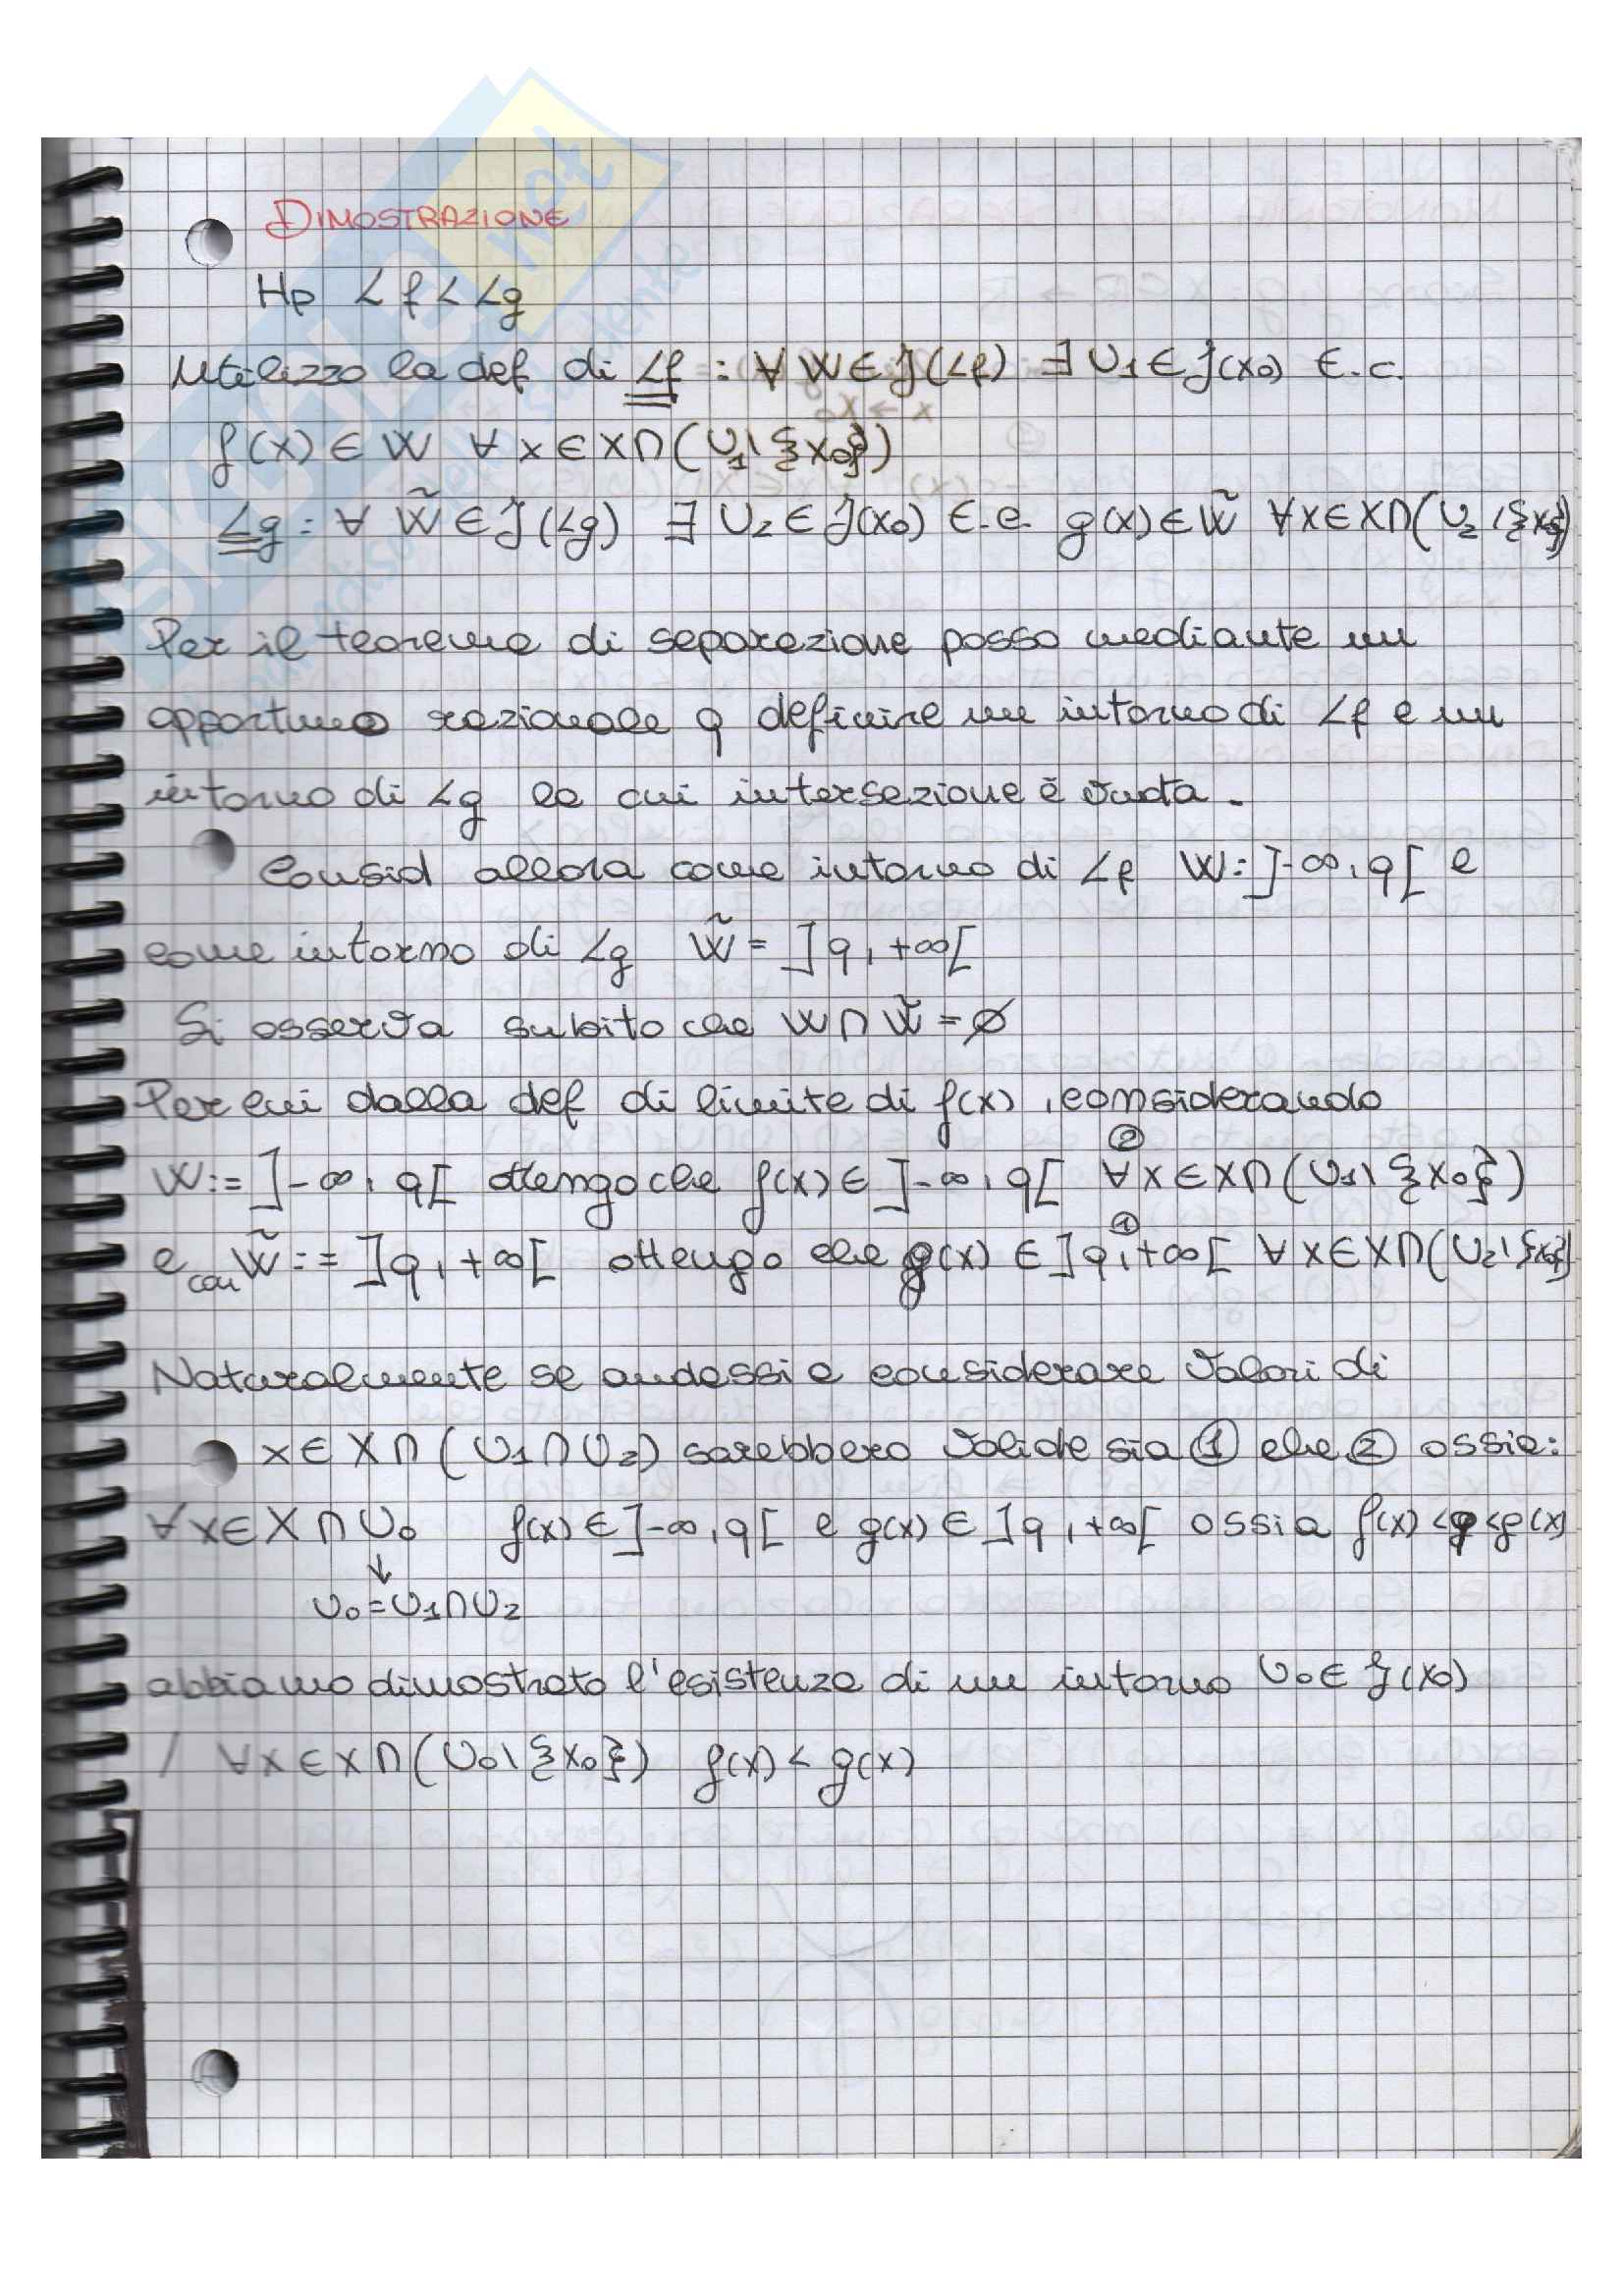 DIMOSTRAZIONE
Hp Lf < Lg
Utilizzo la def di Lf : ∀ W ∈ J(Lf) ∃ U1 ∈ J(x0) t.c.
f(x) ∈ W ∀ x ∈ X ∩ (U1 \ {x0})
Lg : ∀ W̃ ∈ J(Lg) ∃ U2 ∈ J(x0) t.c. g(x) ∈ W̃ ∀x ∈ X ∩ (U2 \ {x0})
Per il teorema di separazione posso mediante un
opportuno razionale q definire un intorno di Lf e un
intorno di Lg la cui intersezione è vuota.
Consid allora come intorno di Lf W:=]-∞, q[ e
come intorno di Lg W̃ = ]q, +∞[
Si osserva subito che W ∩ W̃ = ∅
Per cui dalla def di limite di f(x), considerando
②
W:= ]-∞, q[ ottengo che f(x) ∈ ]-∞, q[ ∀x ∈ X ∩ (U1 \ {x0})
①
e con W̃ := ]q, +∞[ ottengo che g(x) ∈ ]q, +∞[ ∀ x ∈ X ∩ (U2 \ {x0})
Naturalmente se andassi a considerare valori di
x ∈ X ∩ (U1 ∩ U2) sarebbero valide sia ① che ② ossia:
∀ x ∈ X ∩ U0 f(x) ∈ ]-∞, q[ e g(x) ∈ ]q, +∞[ ossia f(x) < q < g(x)
↓
U0 = U1 ∩ U2
abbiamo dimostrato l'esistenza di un intorno U0 ∈ J(x0)
/ ∀x ∈ X ∩ (U0 \ {x0}) f(x) < g(x)